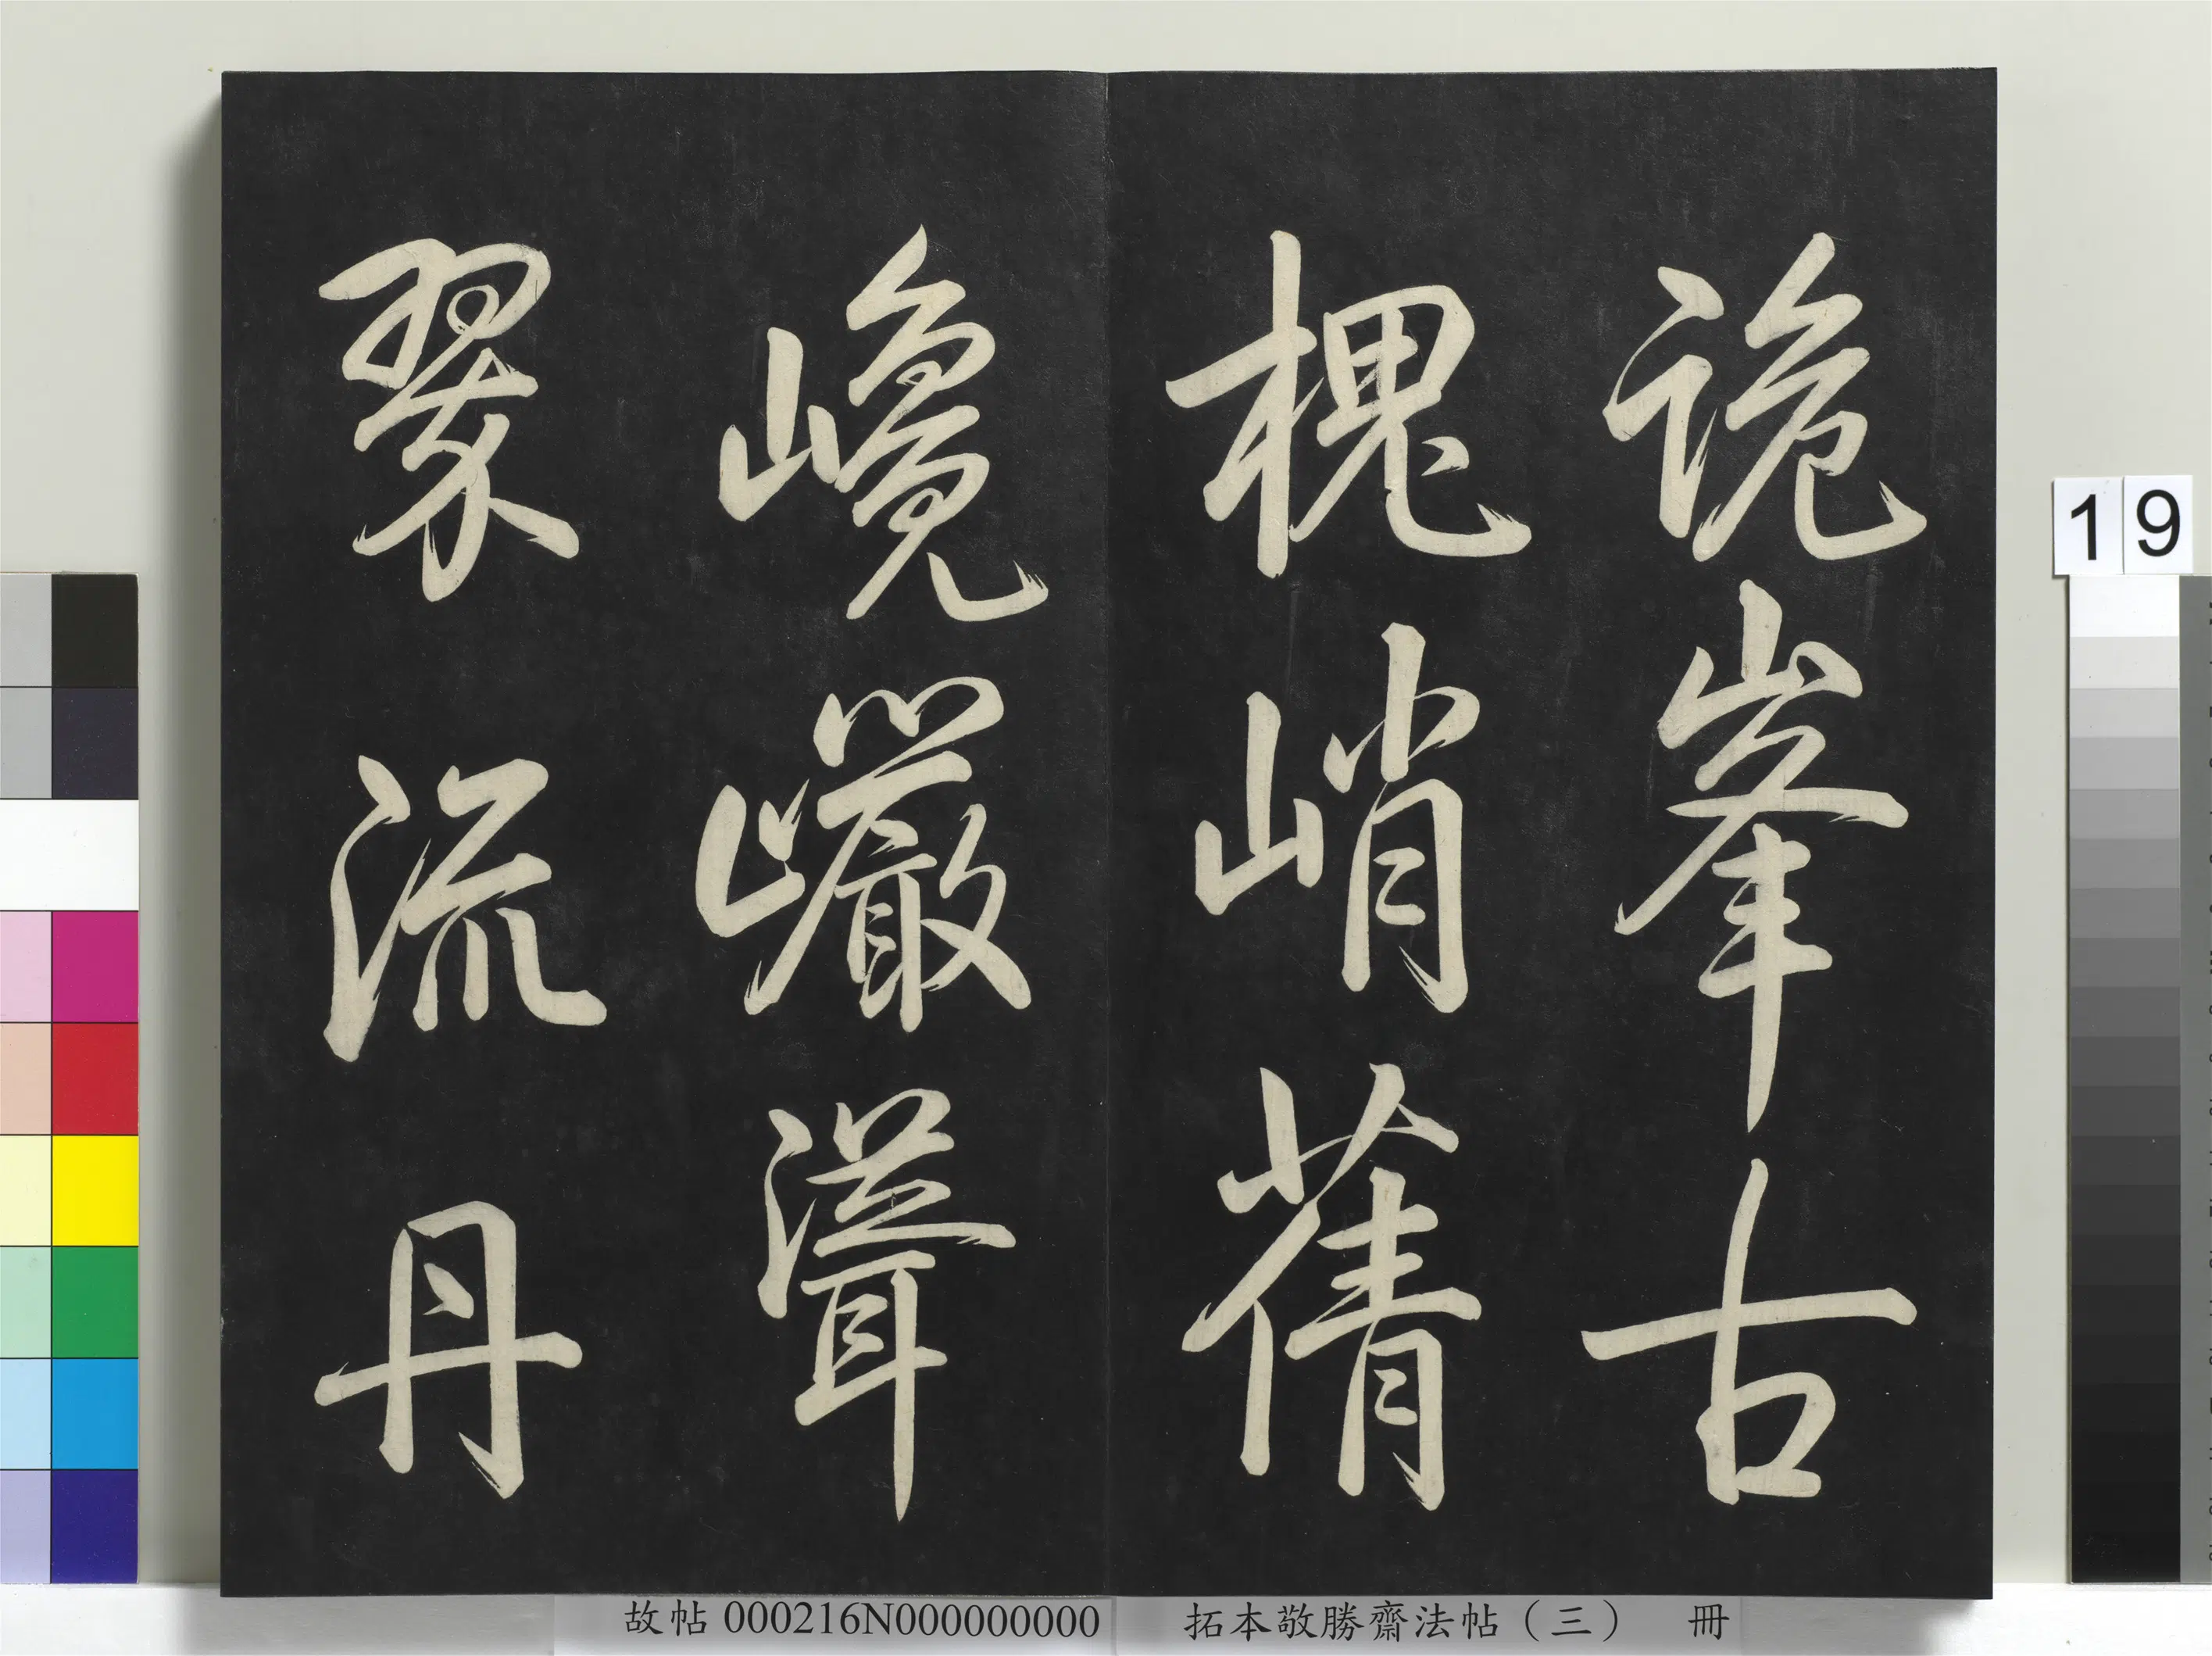 詭峯古
槐峭蒨
巉巗聳
翠流丹
19
故帖 000216N000000000
拓本敬勝齋法帖（三） 冊